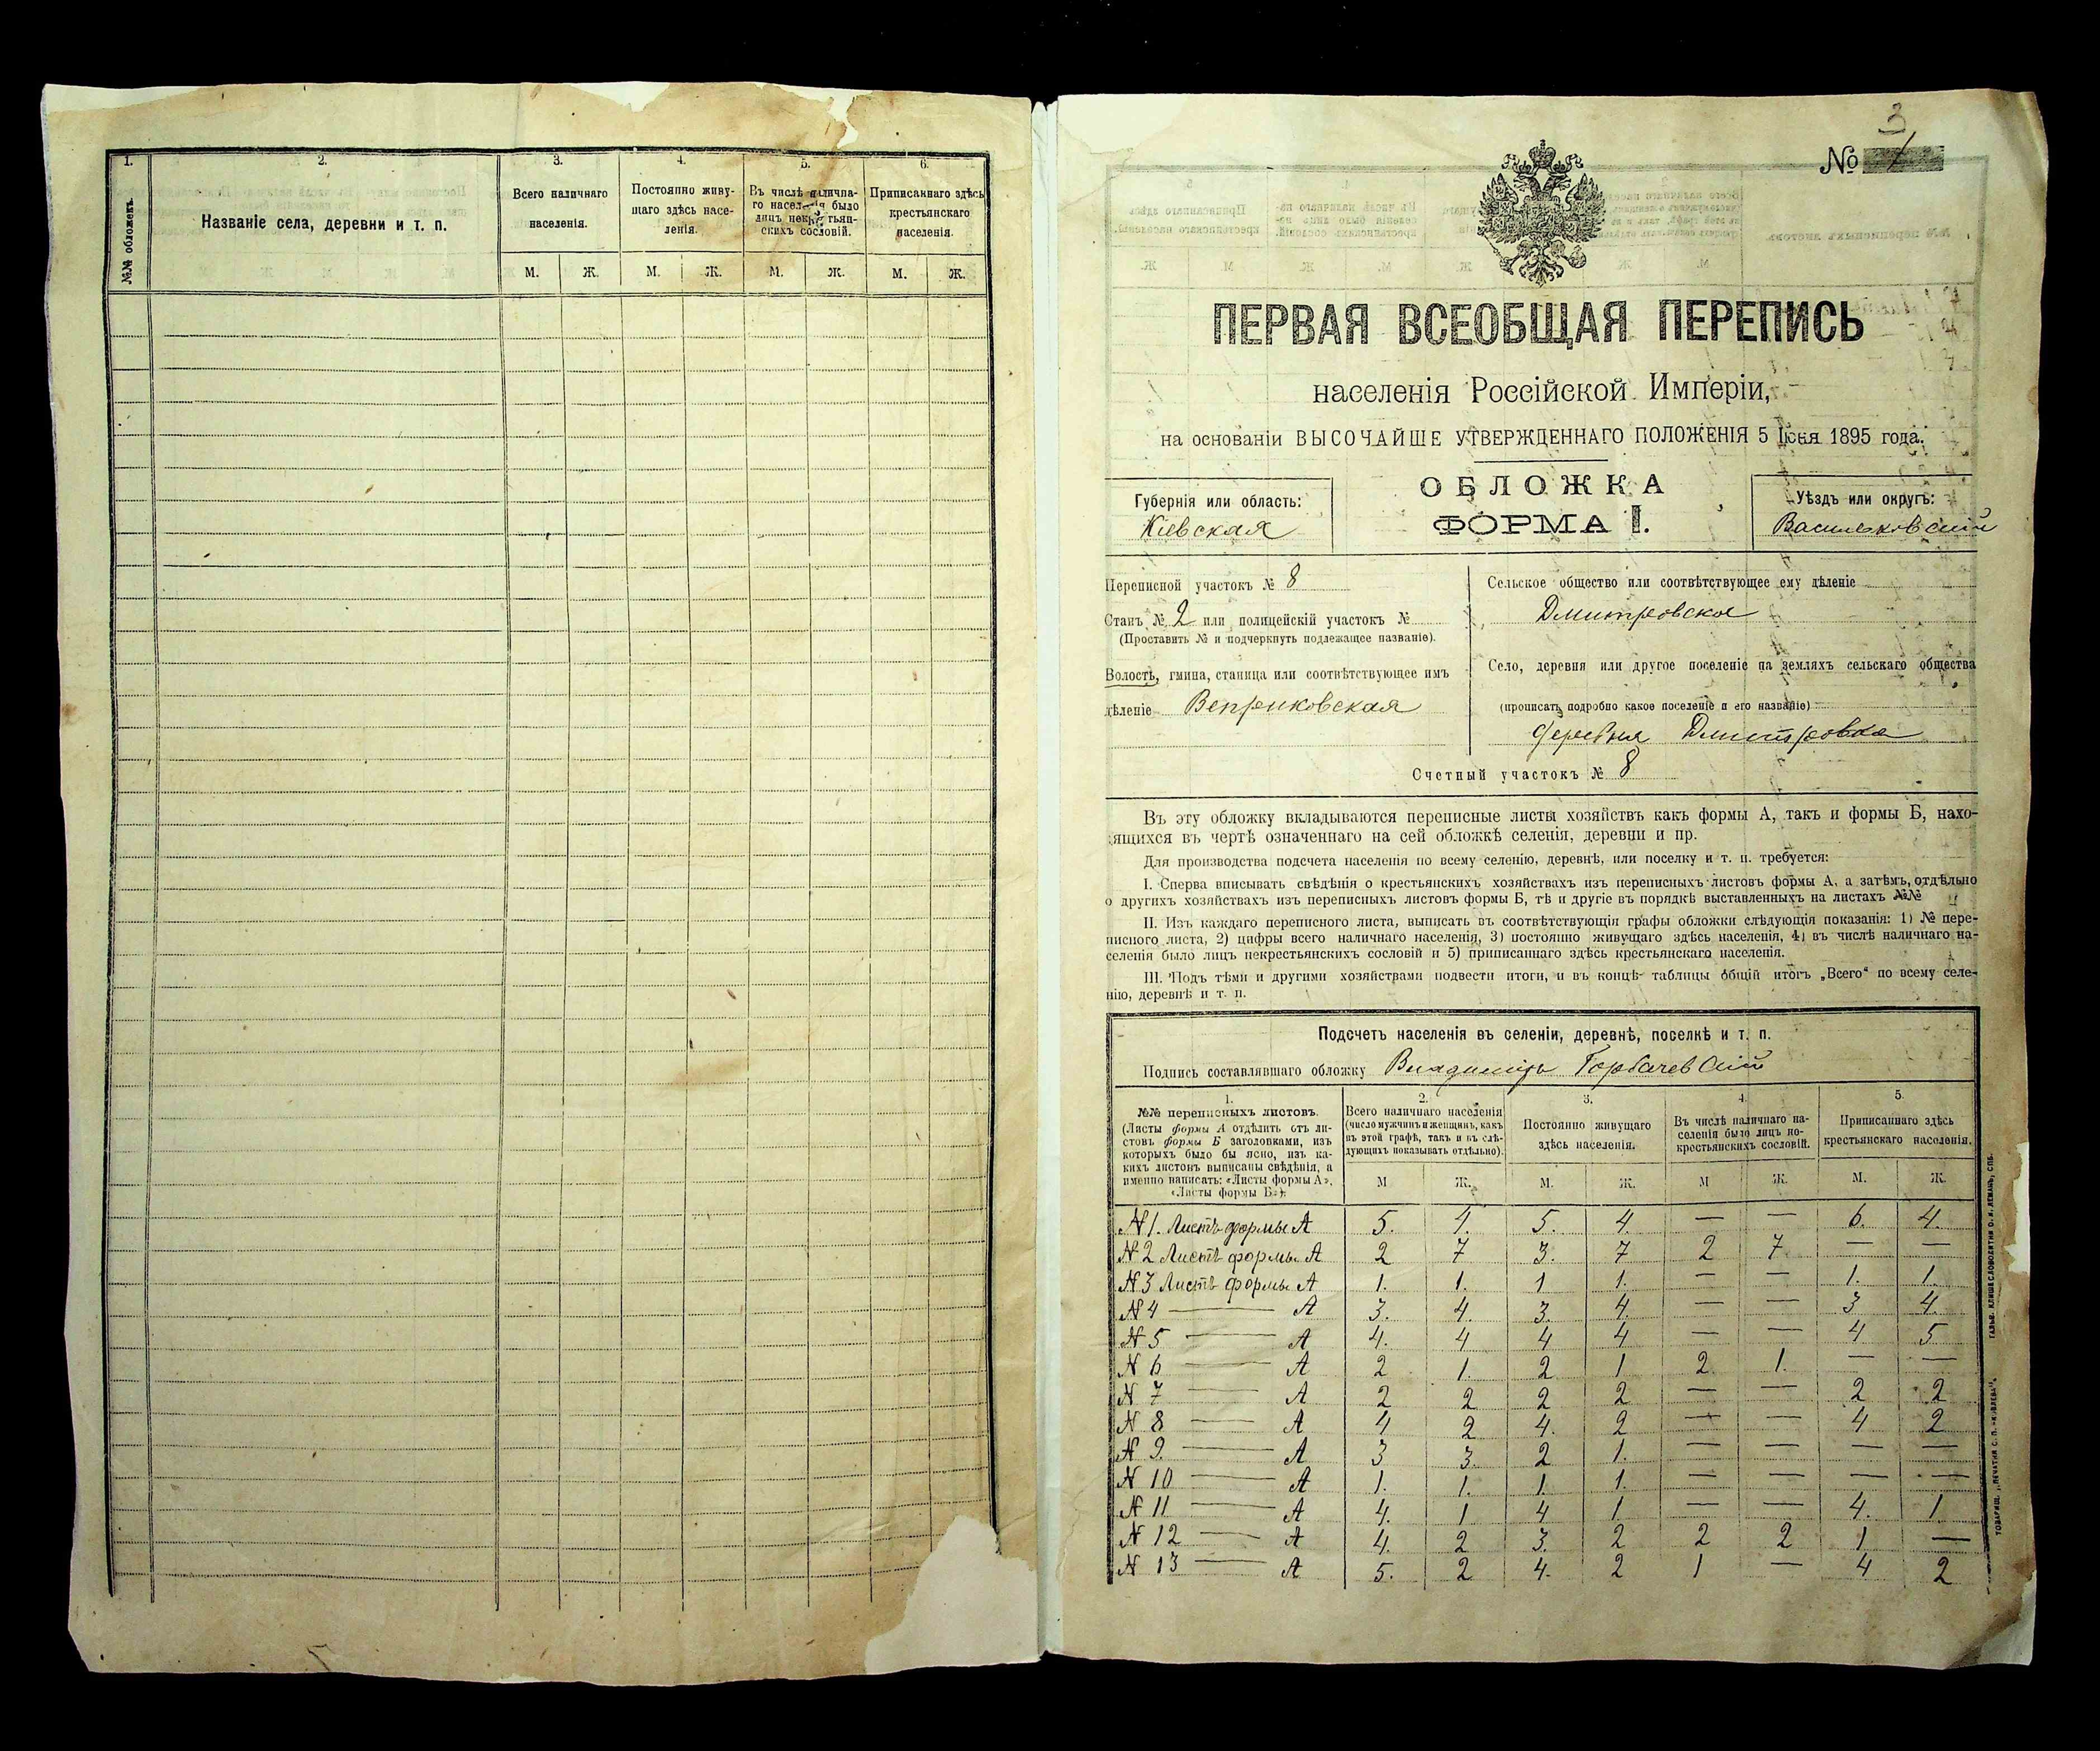 1.
2.
3.
4.
5.
6.
№№ обложекъ.
Названіе села, деревни и т. п.
Всего наличнаго
населенія.
Постоянно живу-
щаго здѣсь насе-
ленія.
Въ числѣ налична-
го населенія было
лицъ некрестьян-
скихъ сословій.
Приписаннаго здѣсь
крестьянскаго
населенія.
М. Ж. М. Ж. М. Ж. М. Ж.
3
№
ПЕРВАЯ ВСЕОБЩАЯ ПЕРЕПИСЬ
населенія Россійской Имперіи,
на основаніи ВЫСОЧАЙШЕ УТВЕРЖДЕННАГО ПОЛОЖЕНІЯ 5 Іюня 1895 года.
Губернія или область:
Кіевская
ОБЛОЖКА
ФОРМА I.
Уѣздъ или округъ:
Васильковскій
Переписной участокъ № 8
Станъ № 2 или полицейскій участокъ №
(Проставить № и подчеркнуть подлежащее названіе).
Волость, гмина, станица или соотвѣтствующее имъ
дѣленіе Веприковская
Сельское общество или соотвѣтствующее ему дѣленіе
Дмитровское
Село, деревня или другое поселеніе на земляхъ сельскаго общества
(прописать подробно какое поселеніе и его названіе)
деревня Дмитровка
Счетный участокъ № 8
Въ эту обложку вкладываются переписные листы хозяйствъ какъ формы А, такъ и формы Б, нахо-
ящихся въ чертѣ означеннаго на сей обложкѣ селенія, деревни и пр.
Для производства подсчета населенія по всему селенію, деревнѣ, или поселку и т. п. требуется:
I. Сперва вписывать свѣдѣнія о крестьянскихъ хозяйствахъ изъ переписныхъ листовъ формы А, а затѣмъ, отдѣльно
о другихъ хозяйствахъ изъ переписныхъ листовъ формы Б, тѣ и другіе въ порядкѣ выставленныхъ на листахъ №№
II. Изъ каждаго переписного листа, выписать въ соотвѣтствующія графы обложки слѣдующія показанія: 1) № пере-
писного листа, 2) цифры всего наличнаго населенія, 3) постоянно живущаго здѣсь населенія, 4) въ числѣ наличнаго на-
селенія было лицъ некрестьянскихъ сословій и 5) приписаннаго здѣсь крестьянскаго населенія.
III. Подъ тѣми и другими хозяйствами подвести итоги, и въ концѣ таблицы общій итогъ „Всего“ по всему селе-
нію, деревнѣ и т. п.
Подсчетъ населенія въ селеніи, деревнѣ, поселкѣ и т. п.
Подпись составлявшаго обложку Владиміръ Горбачевскій
1.
№№ переписныхъ листовъ.
(Листы формы А отдѣлить отъ ли-
стовъ формы Б заголовками, изъ
которыхъ было бы ясно, изъ ка-
кихъ листовъ выписаны свѣдѣнія, а
именно написать: «Листы формы А»,
«Листы формы Б»).
2.
Всего наличнаго населенія
(число мужчинъ и женщинъ, какъ
въ этой графѣ, такъ и въ слѣ-
дующихъ показывать отдѣльно).
3.
Постоянно живущаго
здѣсь населенія.
4.
Въ числѣ наличнаго на-
селенія было лицъ не-
крестьянскихъ сословій.
5.
Приписаннаго здѣсь
крестьянскаго населенія.
М Ж. М. Ж. М Ж. М. Ж.
N 1. Листъ формы А 5. 4. 5. 4. — — 6. 4.
N 2 Листъ формы А 2 7 3. 7 2 7 — —
N 3 Листъ формы А 1. 1. 1 1. — — 1. 1.
N 4 — А 3. 4. 3. 4. — — 3 4.
N 5 — А 4. 4 4 4 — — 4 5
N 6 — А 2 1. 2 1 2 1. — —
N 7 — А 2 2 2 2 — — 2 2
N 8 — А 4 2 4. 2 — — 4 2
N 9. — А 3 3. 2 1. — — — —
N 10 — А 1. 1. 1. 1. — — — —
N 11 — А 4. 1 4 1 — — 4. 1.
N 12 — А 4. 2 3. 2 2 2 1 —
N 13 — А 5. 2 4. 2 1 — 4 2